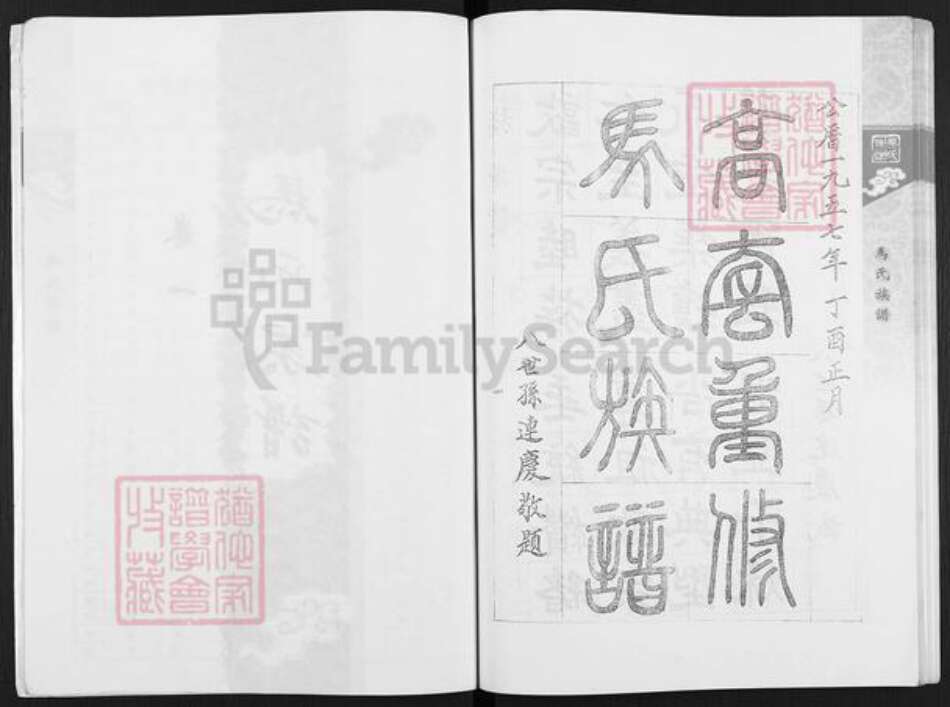 公曆一九五七年丁酉正月
高密重修
馬氏族譜
八世孫連慶敬題
馬氏族譜
猶他家譜學會收藏
猶他家譜學會收藏
FamilySearch